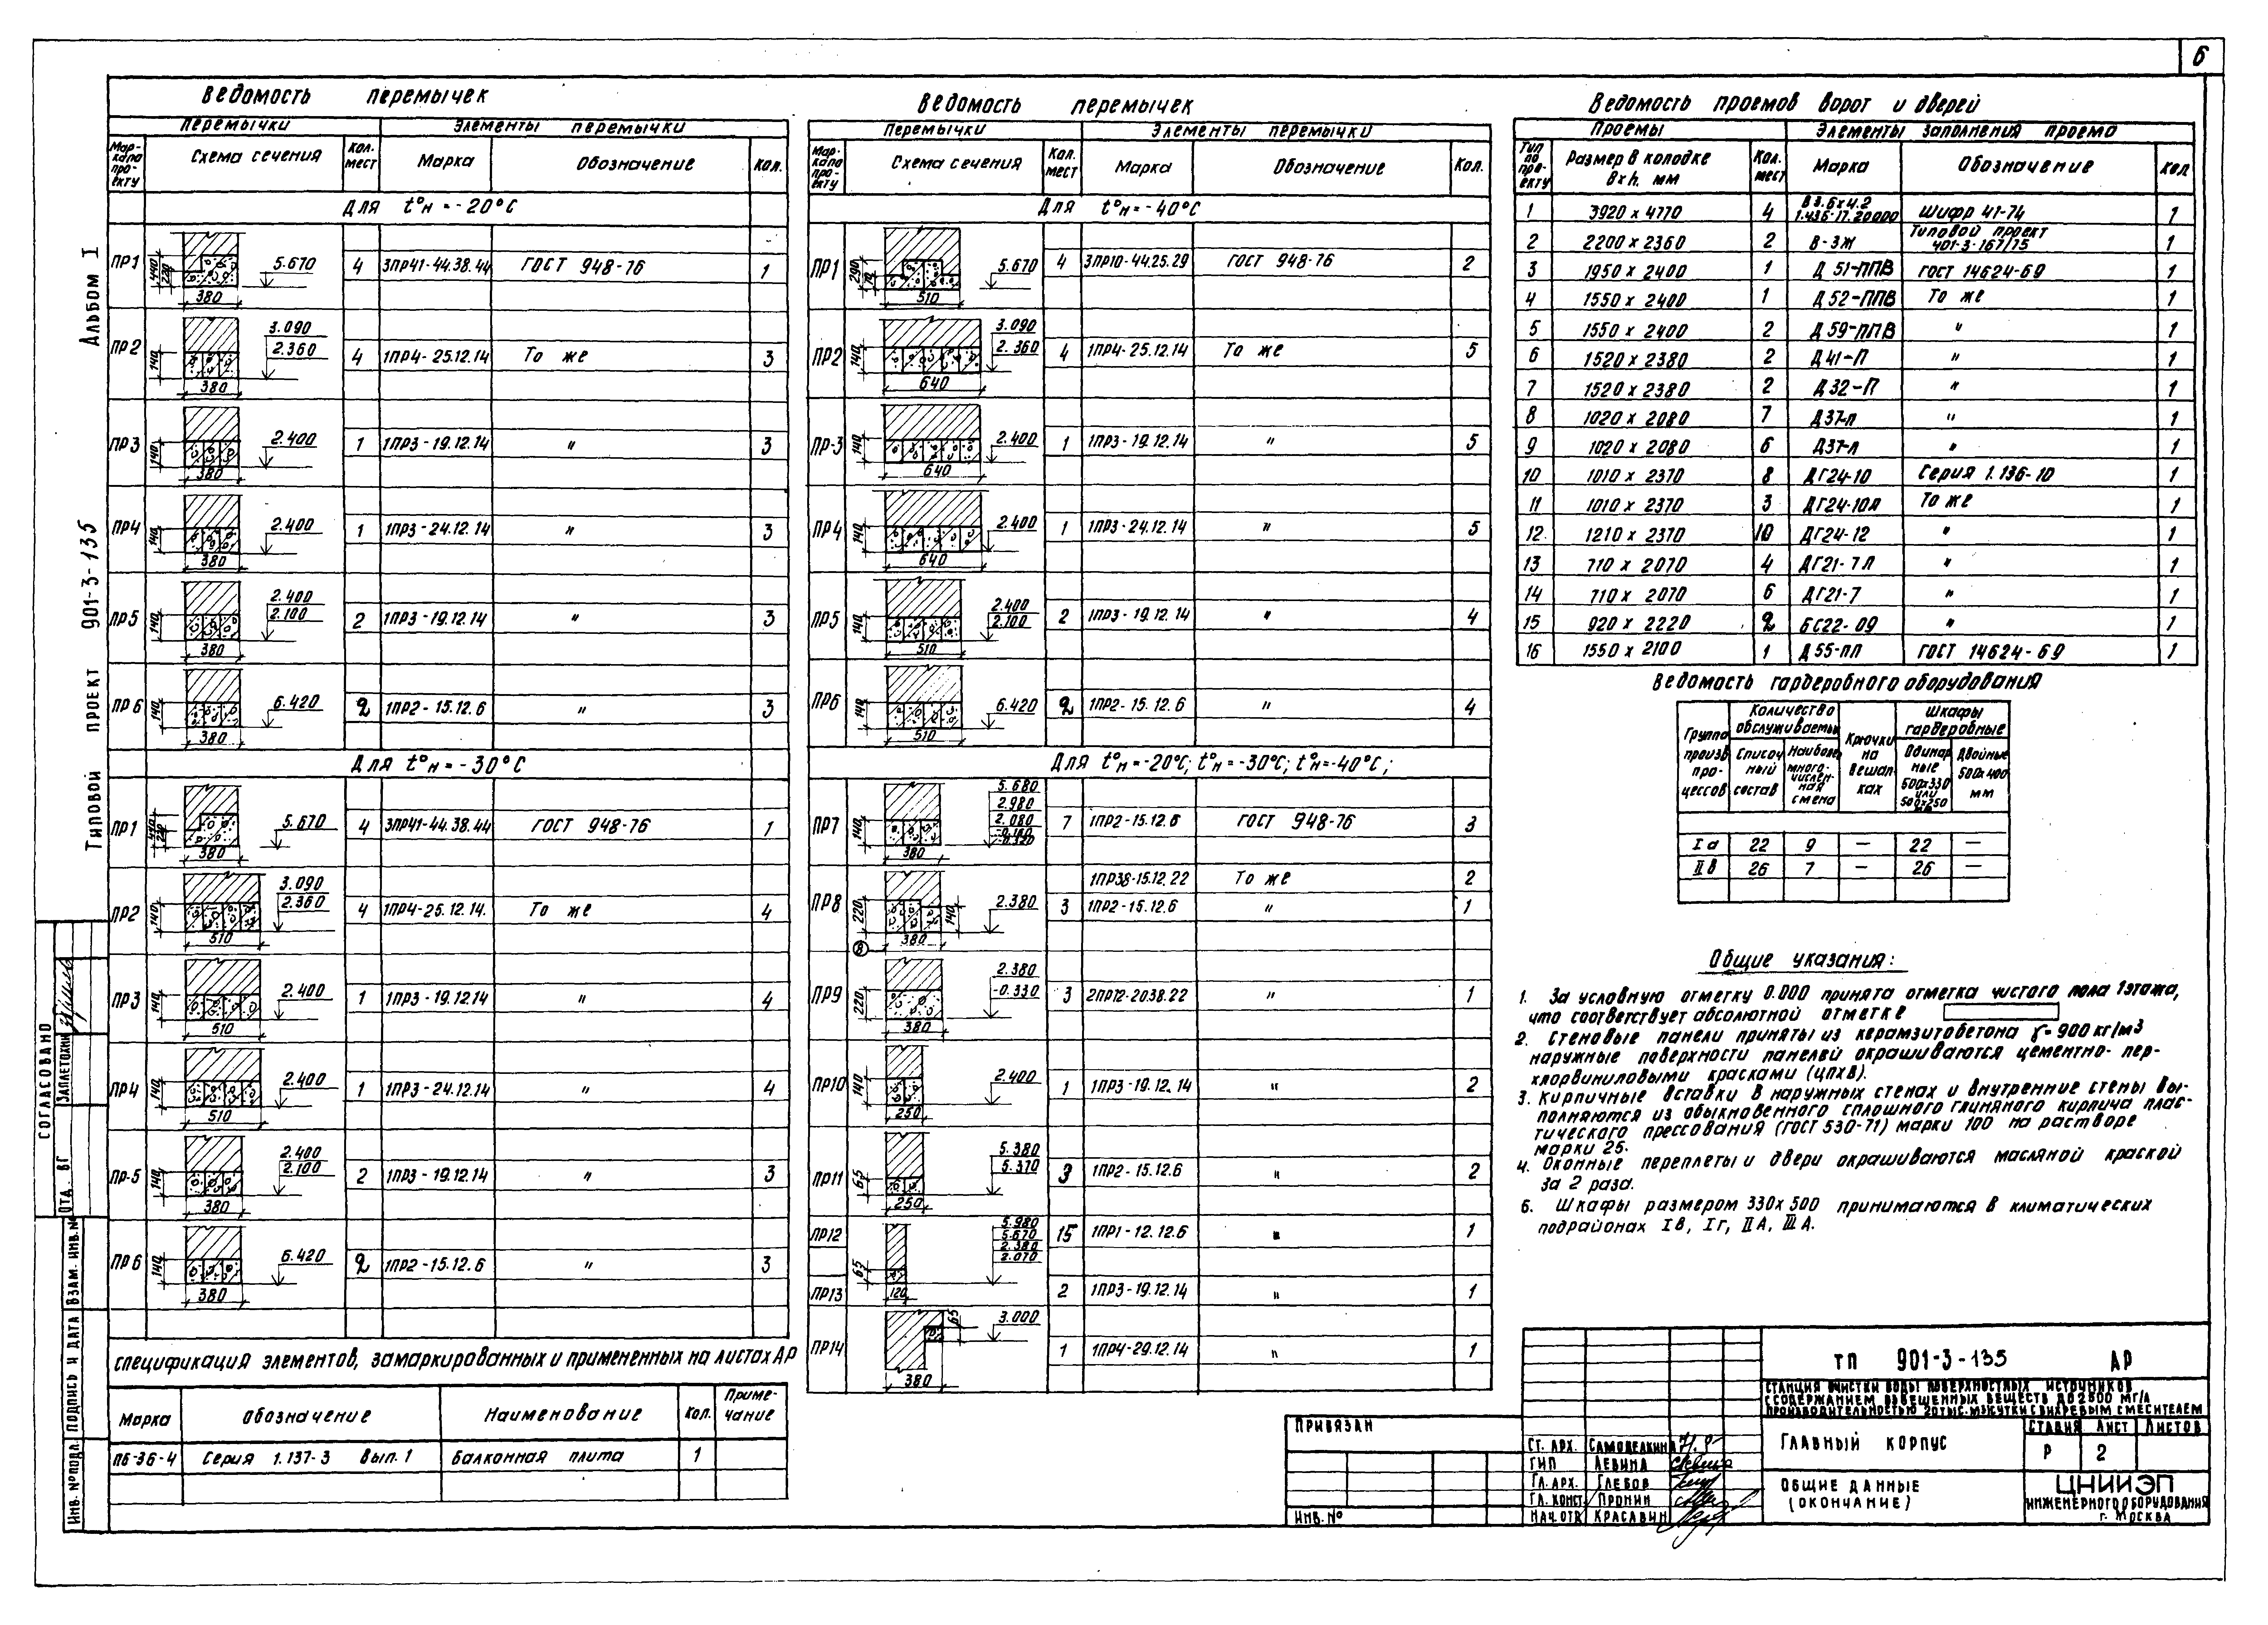 6
Альбом I
Типовой проект 901-3-135
Ведомость перемычек
Перемычки Элементы перемычки
Марка по проекту Схема сечения Кол. мест Марка Обозначение Кол.
Для t°н = -20°С
ПР1 440 220 380 5.670 4 3ПР41-44.38.44 ГОСТ 948-76 1
ПР2 140 380 3.090 2.360 4 1ПР4-25.12.14 То же 3
ПР3 140 380 2.400 1 1ПР3-19.12.14 " 3
ПР4 140 380 2.400 1 1ПР3-24.12.14 " 3
ПР5 140 380 2.400 2.100 2 1ПР3-19.12.14 " 3
ПР6 140 380 6.420 2 1ПР2-15.12.6 " 3
Для t°н = -30°С
ПР1 440 220 380 5.670 4 3ПР41-44.38.44 ГОСТ 948-76 1
ПР2 140 510 3.090 2.360 4 1ПР4-25.12.14. То же 4
ПР3 140 510 2.400 1 1ПР3-19.12.14 " 4
ПР4 140 510 2.400 1 1ПР3-24.12.14 " 4
ПР-5 140 380 2.400 2.100 2 1ПР3-19.12.14 " 3
ПР6 140 380 6.420 2 1ПР2-15.12.6 " 3
Спецификация элементов, замаркированных и примененных на листах АР
Марка Обозначение Наименование Кол. Примечание
ПБ-36-4 Серия 1.137-3 Вып. 1 Балконная плита 1
Ведомость перемычек
Перемычки Элементы перемычки
Марка по проекту Схема сечения Кол. мест Марка Обозначение Кол.
Для t°н = -40°С
ПР1 290 70 510 5.670 4 3ПР10-44.25.29 ГОСТ 948-76 2
ПР2 140 640 3.090 2.360 4 1ПР4-25.12.14 То же 5
ПР-3 140 640 2.400 1 1ПР3-19.12.14 " 5
ПР4 140 640 2.400 1 1ПР3-24.12.14 " 5
ПР5 140 510 2.400 2.100 2 1ПР3-19.12.14 " 4
ПР6 140 510 6.420 2 1ПР2-15.12.6 " 4
Для t°н = -20°С; t°н = -30°С; t°н = -40°С;
ПР7 140 380 5.680 2.980 2.080 7 1ПР2-15.12.6 ГОСТ 948-76 3
1ПР38-15.12.22 То же 2
ПР8 220 140 380 8 2.380 3 1ПР2-15.12.6 " 1
ПР9 220 380 2.380 -0.330 3 2ПР12-20.38.22 " 1
ПР10 140 250 2.400 1 1ПР3-19.12.14 " 2
ПР11 65 250 5.380 5.370 3 1ПР2-15.12.6 " 2
ПР12 65 5.980 5.670 2.380 2.070 15 1ПР1-12.12.6 " 1
ПР13 120 2 1ПР3-19.12.14 " 1
ПР14 65 380 3.000 1 1ПР4-29.12.14 " 1
Ведомость проемов ворот и дверей
Проемы Элементы заполнения проема
Тип по проекту Размер в колодке вхh. мм Кол. мест Марка Обозначение Кол
1 3920 х 4770 4 В 3.6х4.2 1.435-17.20000 Шифр 41-74 1
2 2200 х 2360 2 В-3Ж Типовой проект 401-3-167/75 1
3 1950 х 2400 1 Д 51-ППВ ГОСТ 14624-69 1
4 1550 х 2400 1 Д 52-ППВ То же 1
5 1550 х 2400 2 Д 59-ППВ " 1
6 1520 х 2380 2 Д 41-П " 1
7 1520 х 2380 2 Д 32-П " 1
8 1020 х 2080 7 Д37-п " 1
9 1020 х 2080 6 Д37-л " 1
10 1010 х 2370 8 ДГ24-10 Серия 1.136-10 1
11 1010 х 2370 3 ДГ24-10Л То же 1
12 1210 х 2370 10 ДГ24-12 " 1
13 710 х 2070 4 ДГ21-7Л " 1
14 710 х 2070 6 ДГ21-7 " 1
15 920 х 2220 2 БС22-09 " 1
16 1550 х 2100 1 Д 55-ПЛ ГОСТ 14624-69 1
Ведомость гардеробного оборудования
Группа произв. процессов Количество обслуживаемых Крючки на вешалках Шкафы гардеробные
Списочный состав Наиболее многочисленная смена Одинарные 500х330 или 500х250 Двойные 500х400 мм
Iа 22 9 — 22 —
IIв 26 7 — 26 —
Общие указания:
1. За условную отметку 0.000 принята отметка чистого пола 1 этажа,
что соответствует абсолютной отметке
2. Стеновые панели приняты из керамзитобетона γ=900 кг/м3
наружные поверхности панелей окрашиваются цементно-пер-
хлорвиниловыми красками (ЦПХВ).
3. Кирпичные вставки в наружных стенах и внутренние стены вы-
полняются из обыкновенного сплошного глиняного кирпича плас-
тического прессования (ГОСТ 530-71) марки 100 на растворе
марки 25.
4. Оконные переплеты и двери окрашиваются масляной краской
за 2 раза.
5. Шкафы размером 330х500 принимаются в климатических
подрайонах IВ, IГ, IIА, IIIА.
Привязан
Инв. №
ТП 901-3-135 АР
Станция очистки воды поверхностных источников
с содержанием взвешенных веществ до 2500 мг/л
производительностью 20 тыс. м3/сутки с вихревым смесителем
Ст. арх. Самоделкина
ГИП Левина
Гл. арх. Глебов
Гл. конст. Пронин
Нач. отд. Красавин
Главный корпус
Стадия Лист Листов
Р 2
Общие данные
(окончание)
ЦНИИЭП
инженерного оборудования
г. Москва
Согласовано
Отд. ВГ
Инв. № подл. Подпись и дата Взам. инв. №